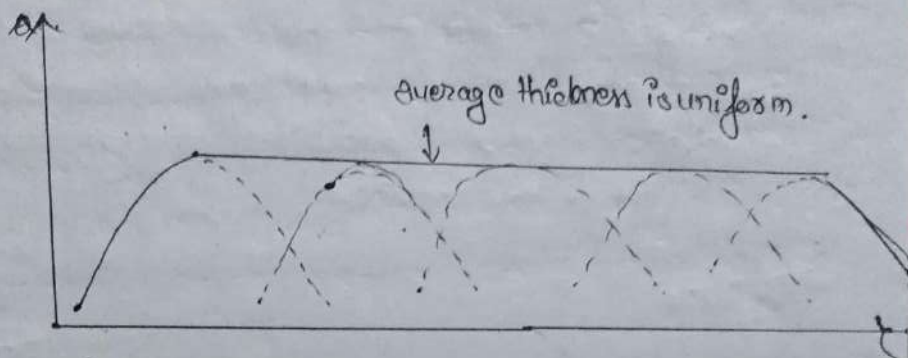 average thickness is uniform.